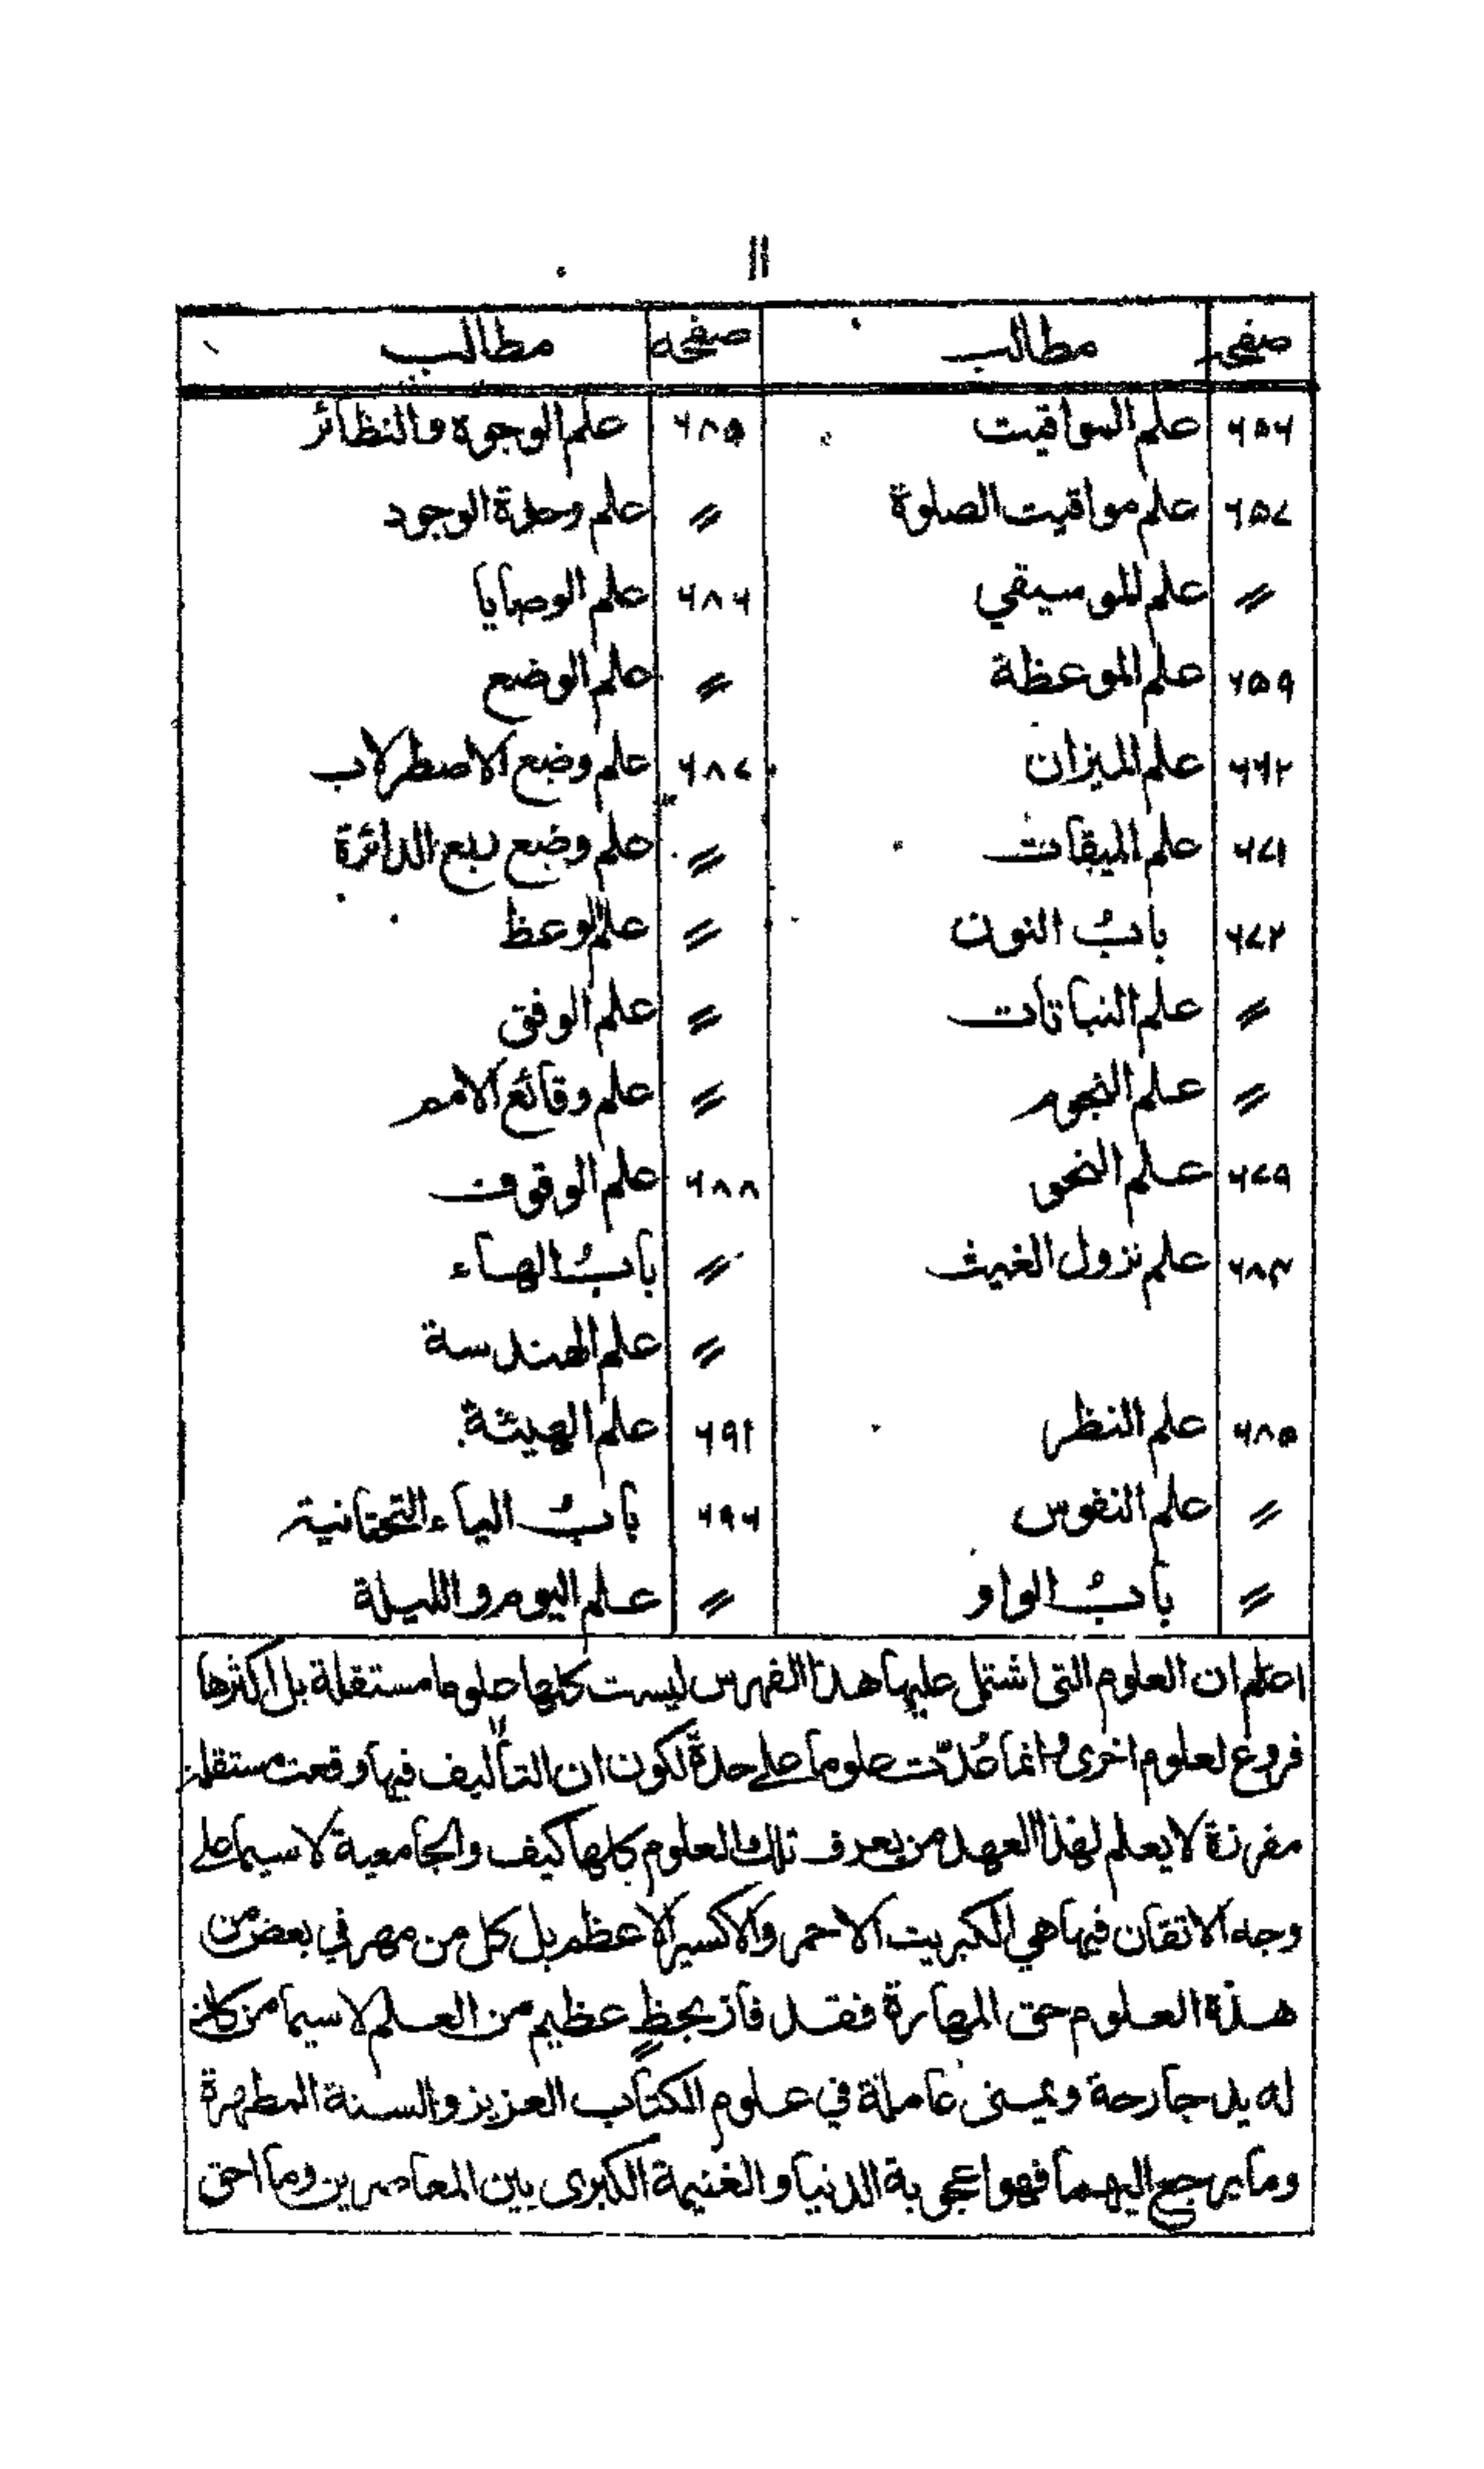 ١١
صفحہ مطالب صفحہ مطالب
٦٥٦ علم المواقيت ٦٨٥ علم الوجوه والنظائر
٦٥٧ علم مواقيت الصلوة 〃 علم وحدة الوجود
〃 علم الموسيقي ٦٨٦ علم الوصايا
٦٥٩ علم الموعظة 〃 علم الوضع
٦٦٢ علم الميزان ٦٨٧ علم وضع الاصطرلاب
٦٧١ علم الميقات 〃 علم وضع ربع الدائرة
٦٧٢ بابُ النون 〃 علم الوعظ
〃 علم النباتات 〃 علم الوفق
〃 علم النجوم 〃 علم وقائع الامم
٦٧٩ علم النحو ٦٨٨ علم الوقوف
٦٨٣ علم نزول الغيث 〃 بابُ الهاء
〃 علم الهندسة
٦٨٥ علم النظر ٦٩١ علم الهيئة
〃 علم النفوس ٦٩٦ بابُ الياء التحتانية
〃 بابُ الواو 〃 علم اليوم والليلة
اعلم ان العلوم التى اشتمل عليها هذا الفهرس ليست كلها علوما مستقلة بل اكثرها
فروع لعلوم اخرى وانما عُدّت علوما على حدة لكون ان التأليف فيها وقعت مستقلة
مفرزة لا يعلم لهذا العهد من يعرف تلك العلوم كلها كيف والجامعية لا سيما على
وجه الاتقان فيها هي الكبريت الاحمر والاكسير الاعظم بل كل من مهر في بعض من
هذه العلوم حق المهارة فقد فاز بحظٍ عظيم من العلم لا سيما من كان
له يد جارحة ويمنى عاملة في علوم الكتاب العزيز والسنة المطهرة
وما يرجع اليهما فهو اعجوبة الدنيا والغنيمة الكبرى بين المعاصرين وما احق